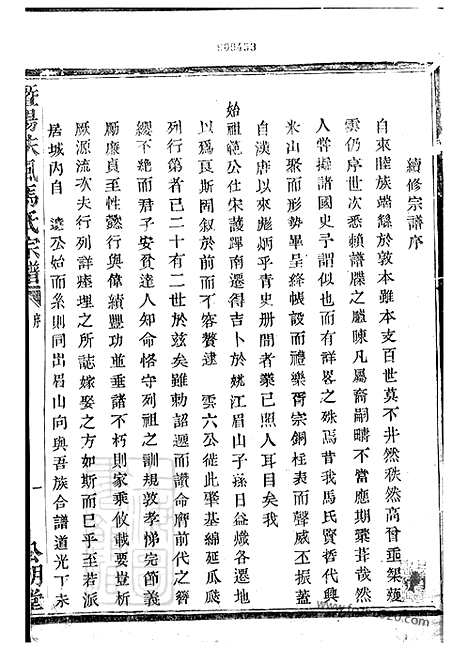 009453
續修宗譜序
自來睦族端繇於敦本雖本支百世莫不井然秩然高曾垂榘矱
雲仍序世次悉賴譜牒之臚陳凡屬裔嗣疇不當應期纂葺哉然
人嘗擬諸國史予謂似也而亦有詳畧之殊焉昔我馬氏賢哲代興
米山聚而形勢畢呈絳帳設而禮樂胥宗銅柱表而聲威丕振蓋
自漢唐以來彪炳乎青史册間者槩已照人耳目矣我
始祖範公仕宋護蹕南遷得吉卜於姚江眉山子孫日益熾各遷地
以爲良斯固叙於前而不容贅逮 雲六公徙此聚基綿延瓜瓞
列行第者已二十有二世於茲矣雖勅詔遞而讚命膺前代之簪
纓不絕而君子安貧達人知命恪守列祖之訓規敦孝悌完節義
勵廉貞至性懿行與偉績豐功並垂諸不朽則家乘攸載要豈析
厥源流次夫行列詳瘞理之所誌嫁娶之方如斯而已乎至若派
居城內自 遠公始而系則同出眉山向與吾族合譜道光丁未
暨陽扶風馬氏宗譜
序
一